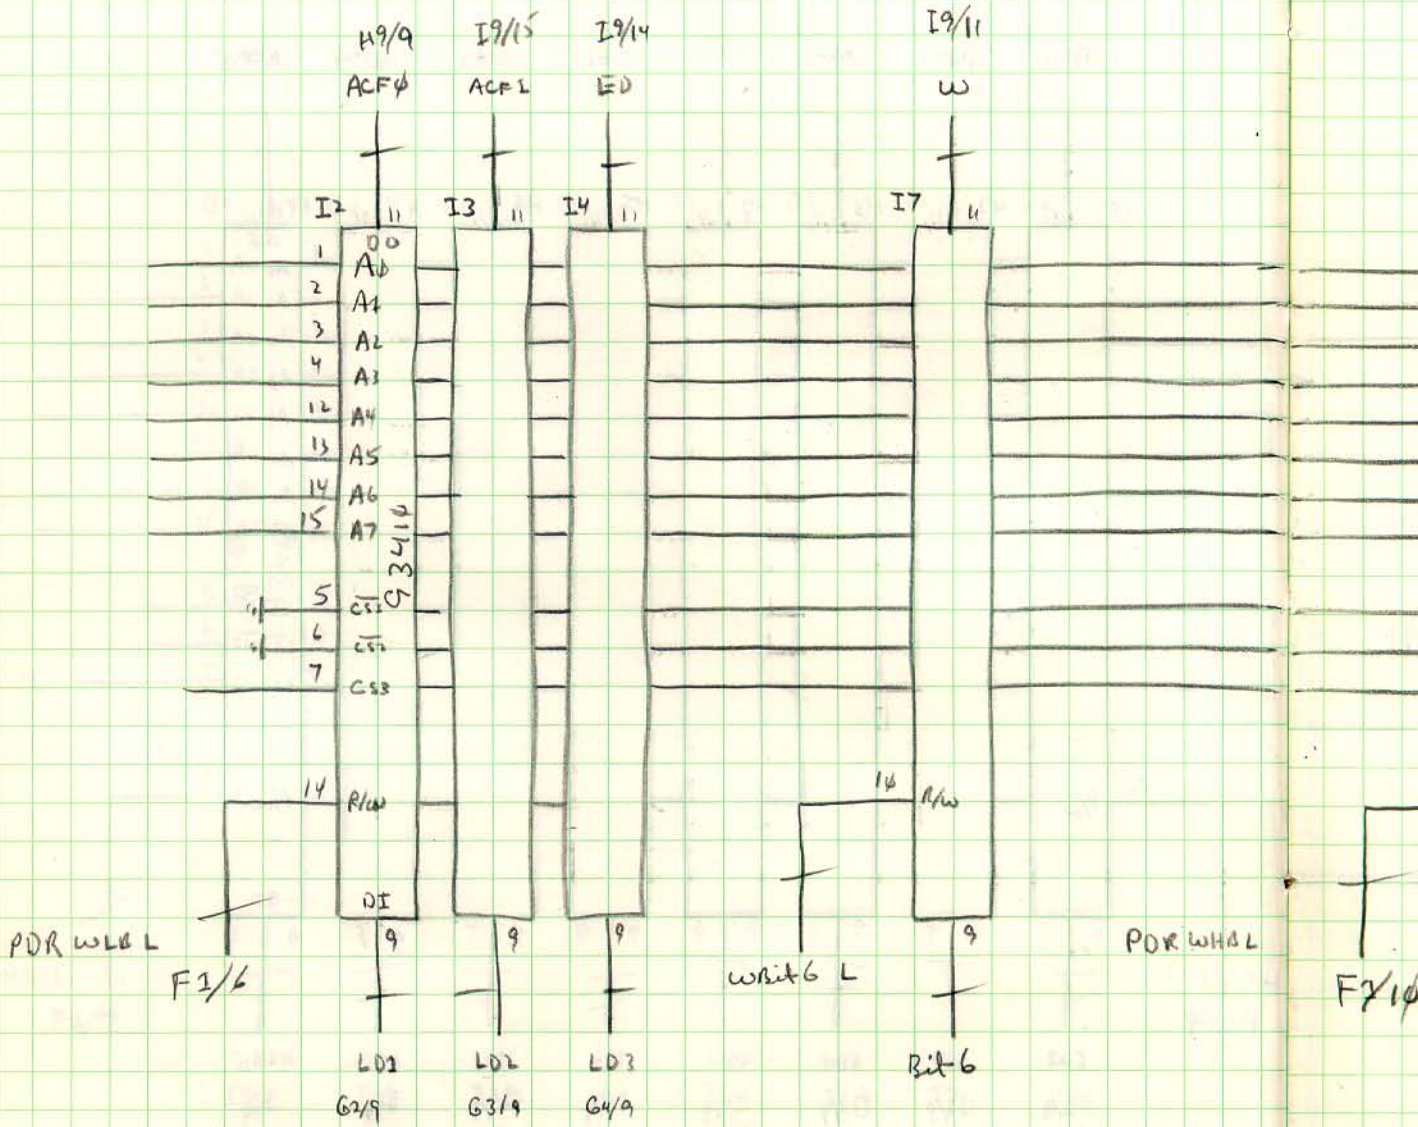 H9/9 I9/15 I9/14 I9/11
ACFφ ACF1 ED W
I2 11 I3 11 I4 11 I7 11
DO
1 Aφ
2 A1
3 A2
4 A3
12 A4
13 A5
14 A6
15 A7
9341φ
5 CS1
6 CS2
7 CS3
1φ R/W 1φ R/W
DI
9 9 9 9
PDR WLB L WBit6 L PDR WHB L
F1/6 F7/1φ
LD1 LD2 LD3 Bit 6
G2/9 G3/9 G4/9